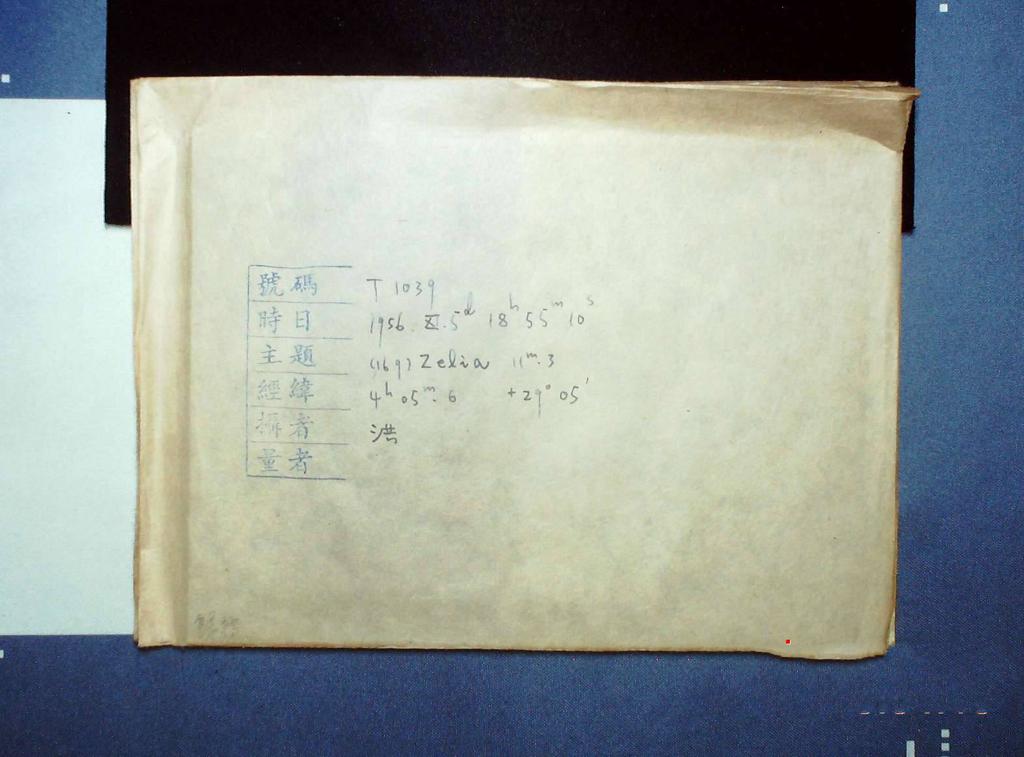 號碼 T 1039
時日 1956. XI. 5ᵈ 18ʰ 55ᵐ 10ˢ
主題 (169) Zelia 11ᵐ.3
經緯 4ʰ 05ᵐ.6 +29° 05′
攝者 洪
量者